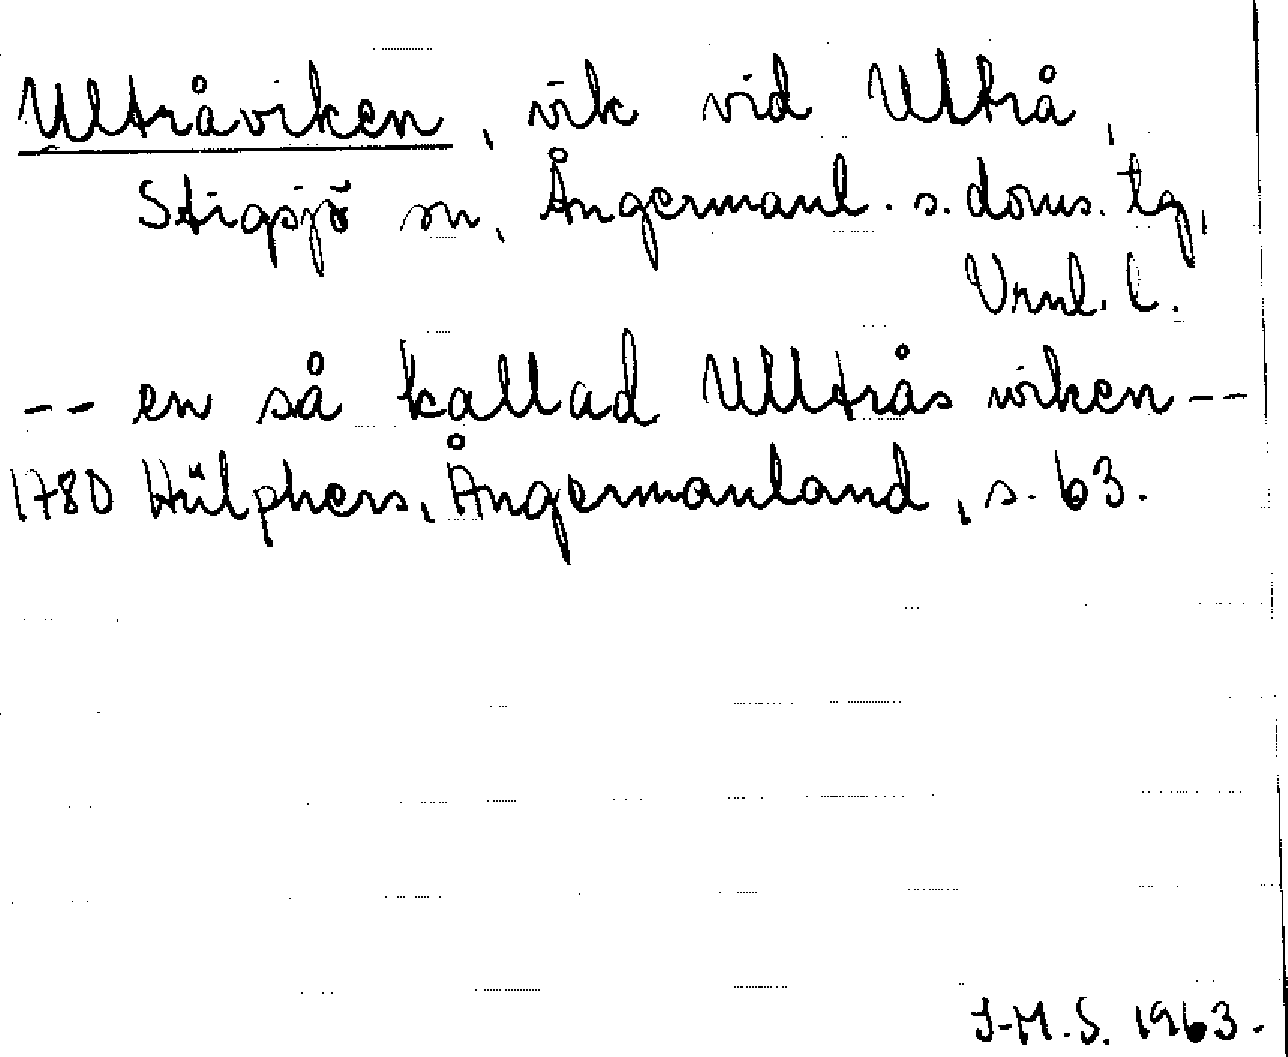 Ultråviken, vik vid Ultrå,
Stigsjö sn, Ångermanl. s. doms. tg,
Vrnl. l.
-- en så kallad Ulltrås wiken --
1780 Hülphers, Ångermanland, s. 63.
I-M.S. 1963.